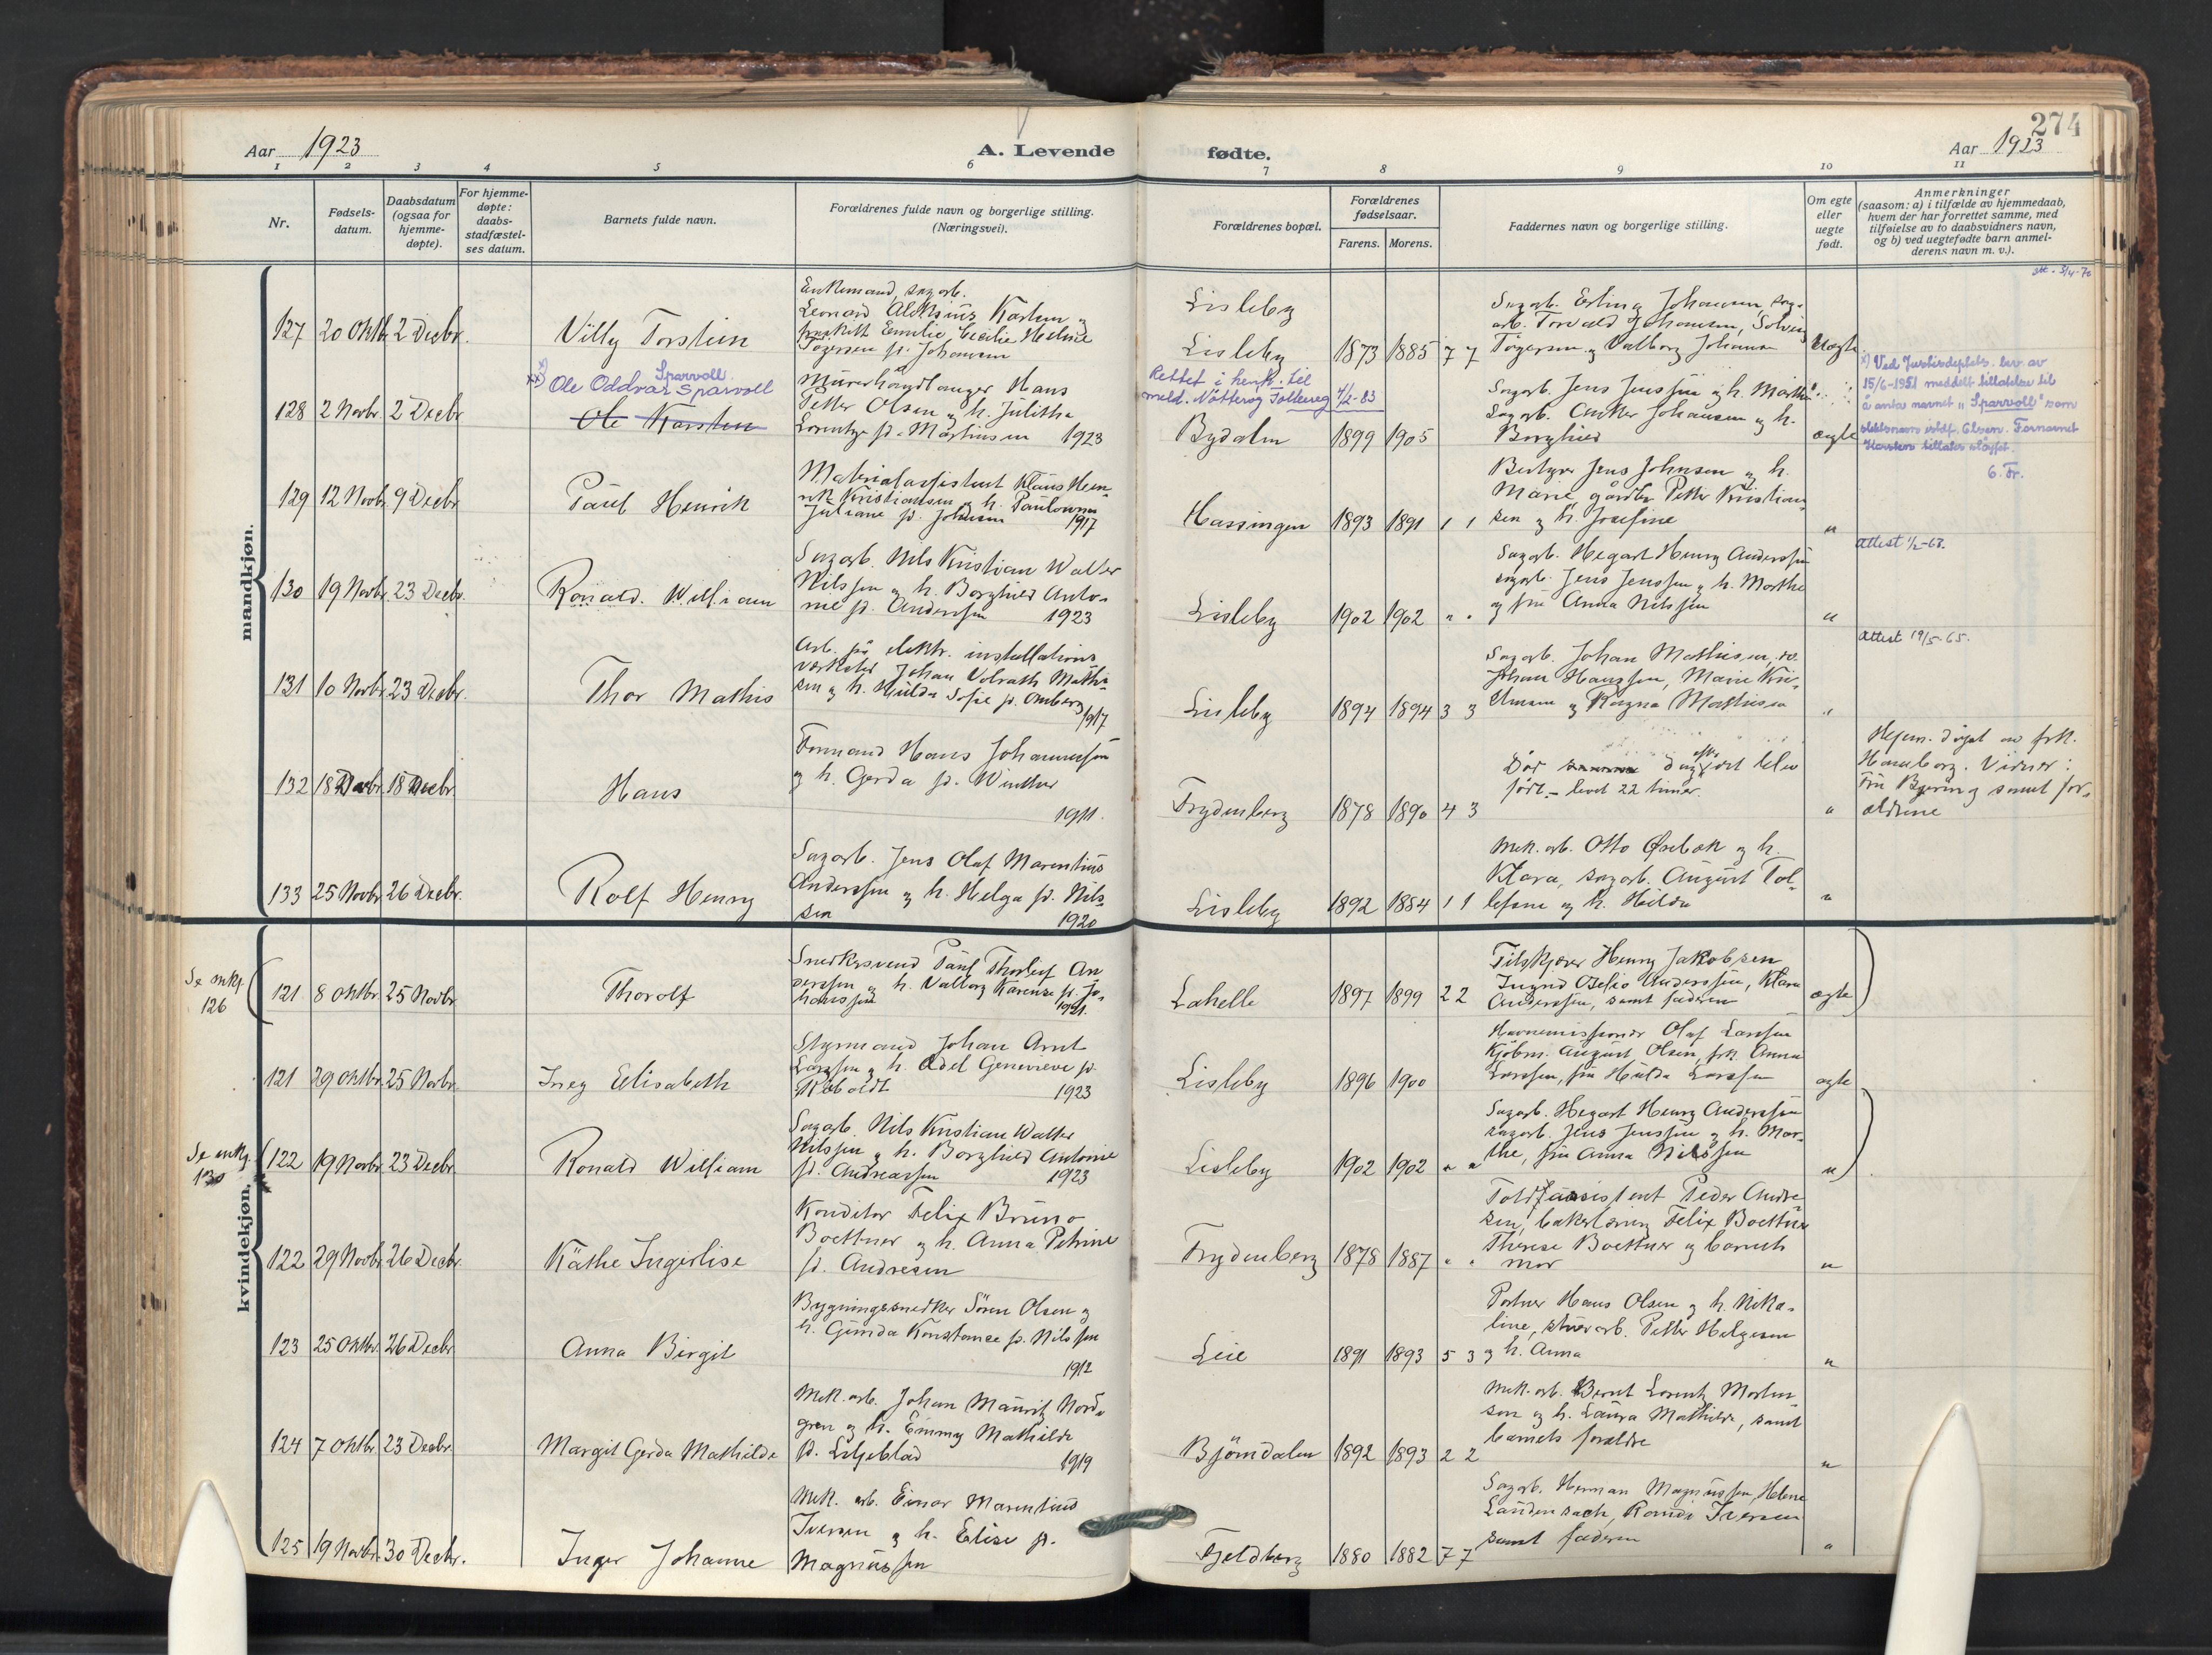 274
Aar 1923
A. Levende
fødte.
Aar 1923
1 2 3 4 5 6 7 8 9 10 11
Nr.
Fødsels-
datum.
Daabsdatum
(ogsaa for
hjemme-
døpte).
For hjemme-
døpte:
daabs-
stadfæstel-
ses datum.
Barnets fulde navn.
Forældrenes fulde navn og borgerlige stilling.
(Næringsvei).
Forældrenes bopæl.
Forældrenes
fødselsaar.
Farens. Morens.
Faddernes navn og borgerlige stilling.
Om egte
eller
uegte
født.
Anmerkninger
(saasom: a) i tilfælde av hjemmedaab,
hvem der har forrettet samme, med
tilføielse av to daabsvidners navn,
og b) ved uegtefødte barn anmel-
derens navn m. v.).
mandkjøn.
127 20 Oktb. 2 Decbr. Villy Torstein
Enkemand, sagarb.
Leonard Aleksius Karlsen og
fraskilt Emilie Cecilie Heline
Tøgersen f. Johansen
Lisleby
Lisleby 1873 1885 7 7
Sagarb. Erling Johansen, sag-
arb. Torvald Johansen, Solveig
Tøgersen og Valborg Johansen
Uegte
128 2 Novbr. 2 Decbr
x) Sparvoll
xx) Ole Oddvar Sparvoll
Ole Karsten
Murerhåndlanger Hans
Petter Olsen og h. Julitha
Lorentze f. Martinsen 1923
Rettet i henh. til
meld. Nøtterøy Folkereg 4/2-83
Bydalen 1899 1905
Sagarb. Jens Jenssen og h. Marthe
Sagarb. Anker Johansen og h.
Borghild
ægte
x) Ved Justisdeptets. brev av
15/6-1951 meddelt tillatelse til
å anta navnet "Sparvoll" som
slektsnavn istdf. Olsen. Fornavnet
Karsten tillates sløyfet.
6. Tr.
129 12 Novbr. 9 Decbr Paul Henrik
Materialassistent Klaus Hen-
rik Kristiansen og h. Paulowna
Juliane f. Johnsen 1917
Hassingen 1893 1891 1 1
Bestyrer Jens Johnsen og h.
Marie, gårdbr. Petter Kristian-
sen og h. Josefine
"
130 19 Novbr. 23 Decbr. Ronald William
Sagarb. Nils Kristian Walter
Nilssen og h. Borghild Anto-
nie f. Anderssen 1923
Lisleby 1902 1902 " "
Sagarb. Hegart Henry Anderssen
sagarb. Jens Jenssen og h. Marthe
og fru Anna Nilssen
"
Attest 1/2-68.
131 10 Novbr. 23 Decbr. Thor Mathis
Arb. på elektr. installations
verksted Johan Volrath Mathi-
sen og h. Hulda Sofie f. Omberg
1917
Lisleby 1894 1894 3 3
Sagarb. Johan Mathisen, do.
Johan Hanssen, Marie Kri-
stiansen og Ragna Mathisen
"
Attest 19/5-65.
132 18 Decbr. 18 Decbr Hans
Formand Hans Johannessen
og h. Gerda f. Winther
1911.
Frydenberg 1878 1890 4 3
Død dagen efter det blev
født. - levet 22 timer.
"
Hjem. døpt av frk.
Hamborg. Vidner:
Fru Bjøring samt for-
ældrene
133 25 Novbr 26 Decbr. Rolf Henry
Sagarb. Jens Olaf Marentius
Anderssen og h. Helga f. Nils-
sen 1920
Lisleby 1892 1884 1 1
Mek. arb. Otto Ørebæk og h.
Klara, sagarb. August Tol-
lefsen og h. Hilda
"
kvindekjøn.
Se mkj.
126
121 8 Oktbr. 25 Novbr Thorolf
Snedkersvend Paul Thorleif An-
derssen og h. Valborg Karense f. Jo-
hanssen 1921.
Lahelle 1897 1899 2 2
Filskjærer Henry Jakobsen
Ingrid Otelio Anderssen, Klara
Anderssen, samt faderen
ægte
121 29 Oktbr. 25 Novbr. Iney Elisabeth
Styrmand Johan Arnt
Larssen og h. Adel Genevieve f.
Skibholdt 1923
Lisleby 1896 1900
Havnemissionær Olaf Larssen
Kjøbm. August Olsen, frk. Anna
Larssen, fru Hulda Larssen
ægte
Se mkj.
130
122 19 Novbr. 23 Decbr. Ronald William
Sagarb. Nils Kristian Walter
Nilssen og h. Borghild Antonie
f. Andreassen 1923
Lisleby 1902 1902 " "
Sagarb. Hegart Henry Anderssen
sagarb. Jens Jenssen og h. Mar-
the, fru Anna Nilssen
"
122 29 Novbr. 26 Decbr. Käthe Ingerlise
Konditor Felix Bruno
Boettner og h. Anna Petrine
f. Andresen
Frydenberg 1878 1887 " "
Toldassistent Peder Andre-
sen, bakerlærling Felix Boettner
Therese Boettner og barnets
mor
"
123 25 Oktbr. 26 Decbr. Anna Birgit
Bygningssnedker Søren Olsen og
h. Gunda Konstanse f. Nilssen
1912
Leie 1891 1893 5 3
Portner Hans Olsen og h. Nika-
line, stuerarb. Petter Helgesen
og h. Anna
"
124 7 Oktbr. 23 Decbr. Margit Gerda Mathilde
Mek. arb. Johan Maurits Nord-
gren og h. Emmy Mathilde
f. Liljeblad 1919
Bjørndalen 1892 1893 2 2
Mek. arb. Bernt Lorentz Morten-
sen og h. Laura Mathilde, samt
barnets forældre
"
125 19 Novbr. 30 Decbr. Inger Johanne
Mek. arb. Einar Marentius
Iversen og h. Elise f.
Magnussen
Fjeldberg 1880 1882 7 7
Sagarb. Herman Magnussen, Helene
Laudensach, Ronda Iversen
samt faderen
"